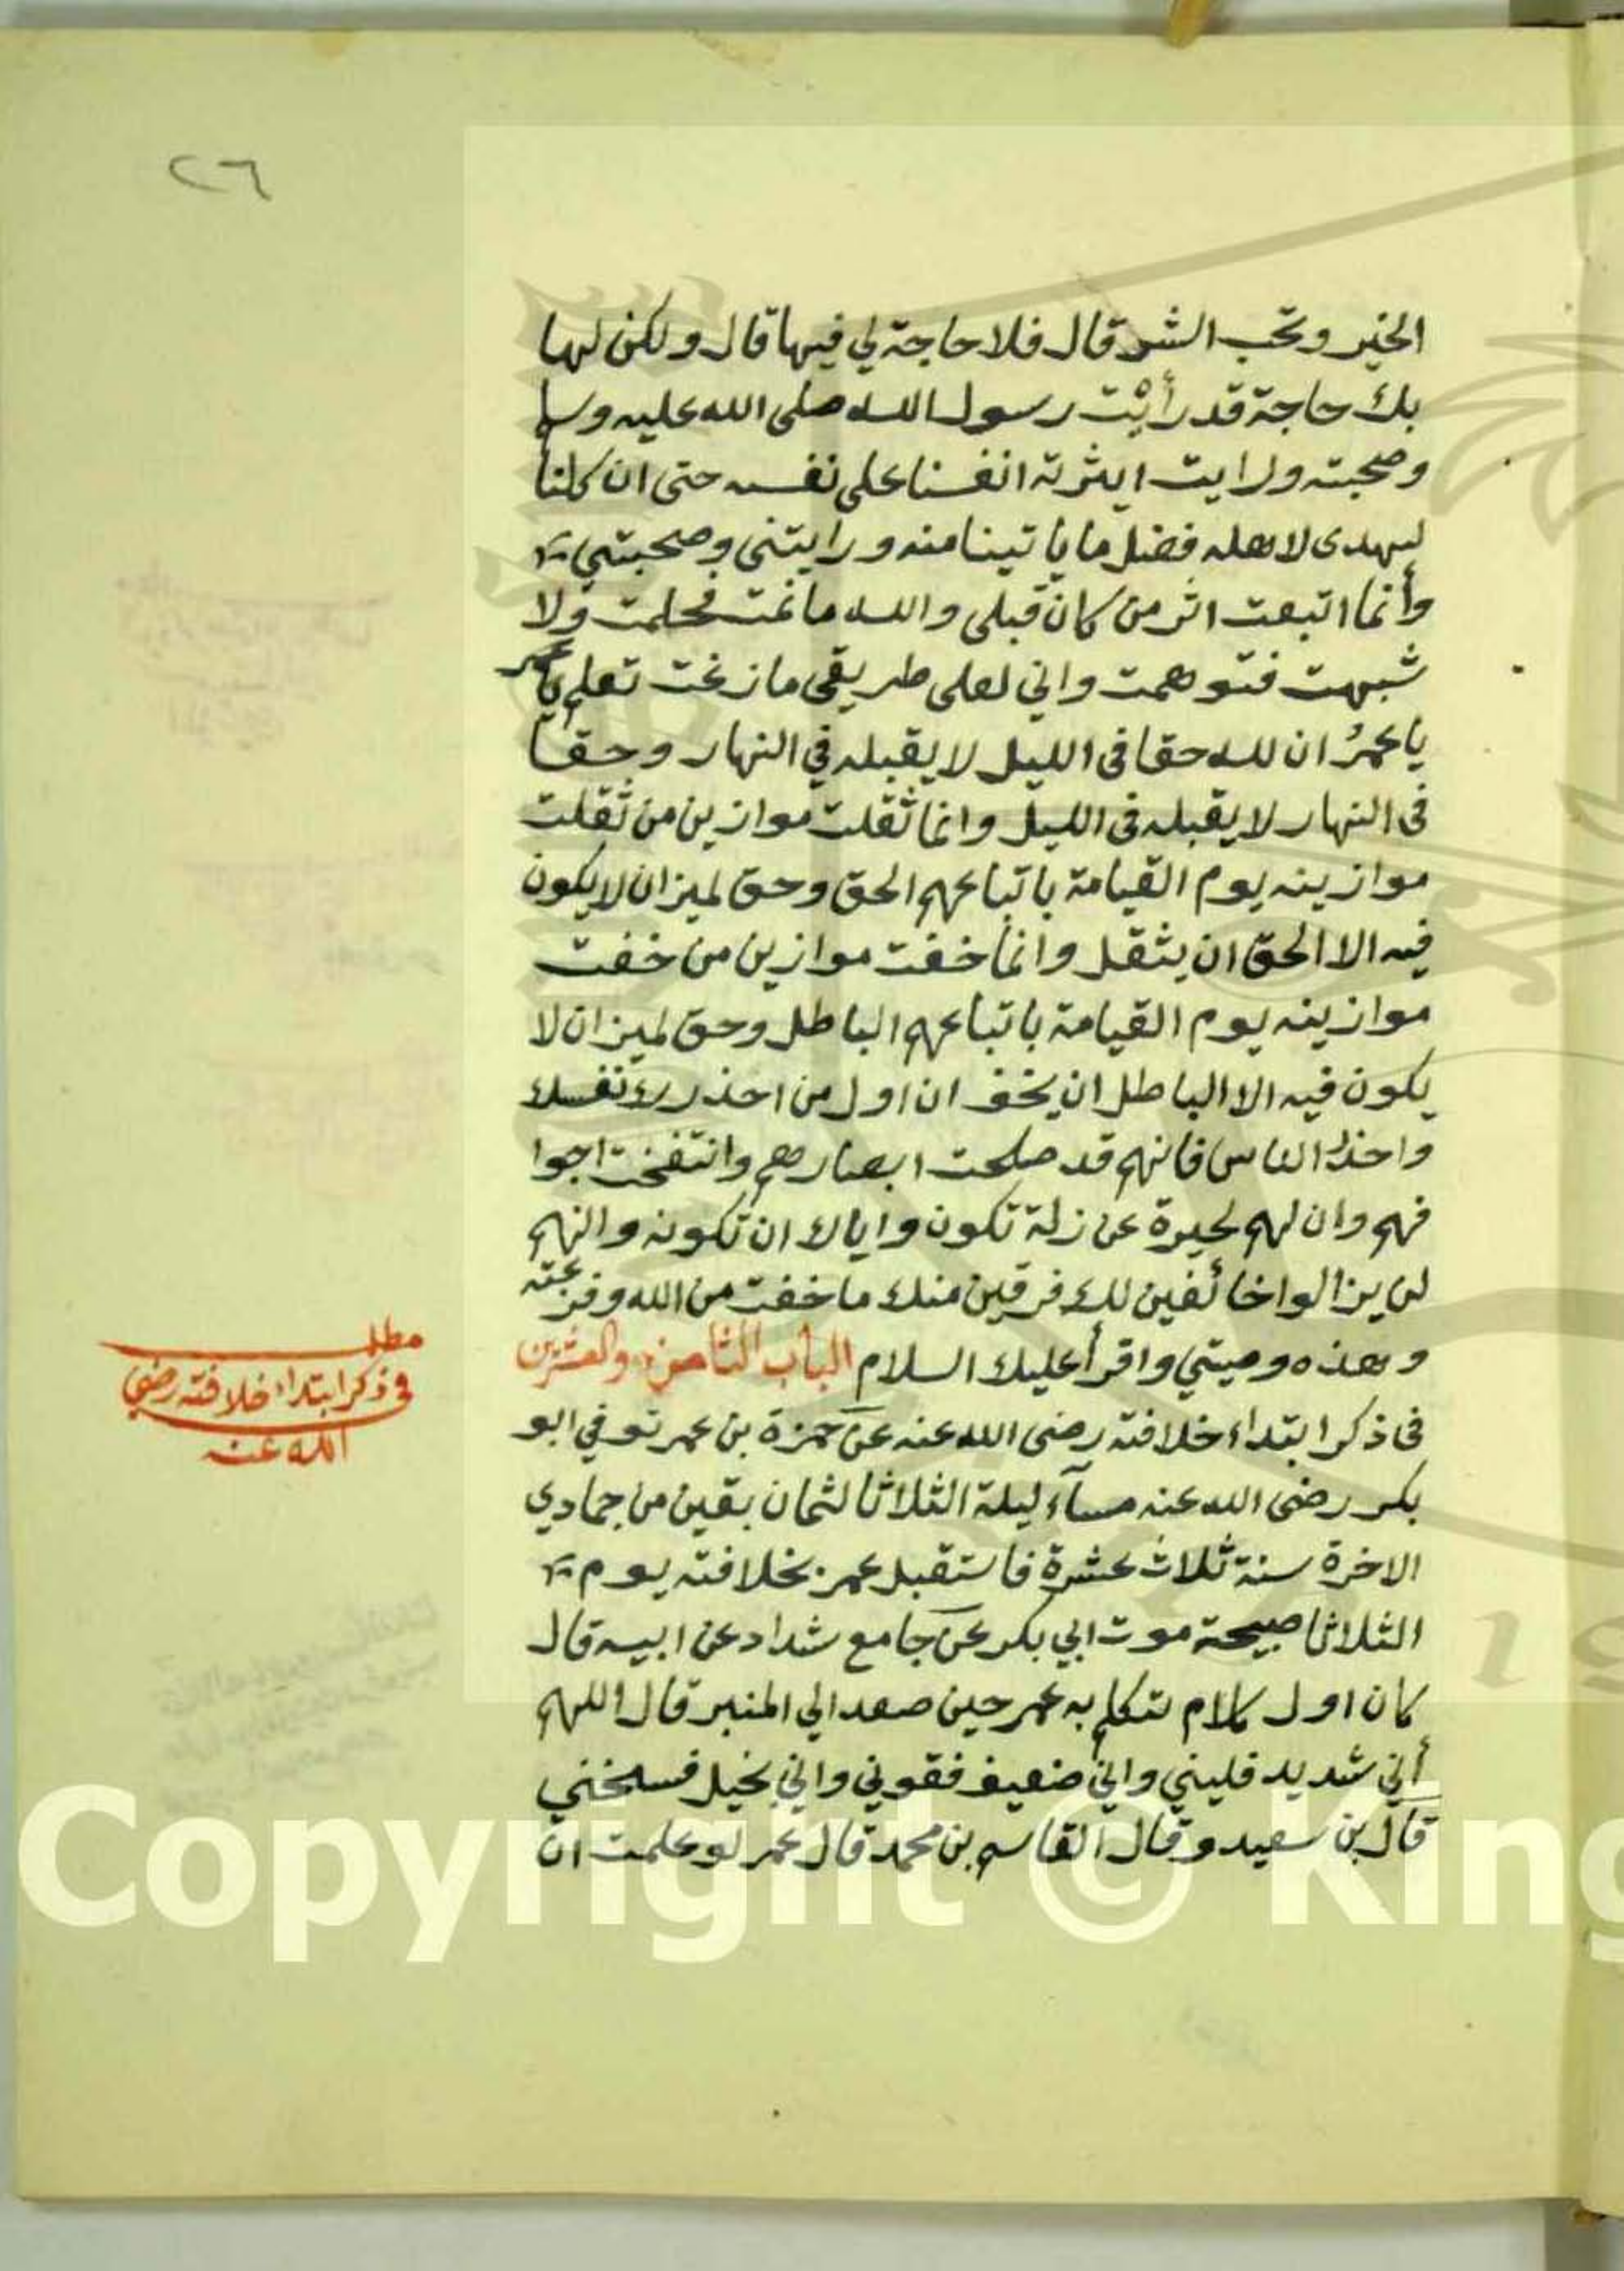 ٢٦
الخير وتحب الشر قال فلا حاجة لي فيها قال ولكن لها
بك حاجة قد رأيت رسول الله صلى الله عليه وسلم
وصحبته ورايت ايثرته انفسنا على نفسه حتى ان كلنا
ليهدى لاهله فضل ما ياتينا منه ورايتنى وصحبتني
وأنما اتبعت اثر من كان قبلى والله ما نمت فحلمت ولا
شبهت فتوهمت واني لعلى طريقى ما زغت تعلم يا عمر
يا عمرُ ان لله حقا فى الليل لا يقبله في النهار وحقا
فى النهار لا يقبله فى الليل وانما ثقلت موازين من ثقلت
موازينه يوم القيامة باتباعهم الحق وحق لميزان لا يكون
فيه الا الحق ان يثقل وانما خفت موازين من خفت
موازينه يوم القيامة باتباعهم الباطل وحق لميزان لا
يكون فيه الا الباطل ان يخف ان اول من احذرك نفسك
واحذر الناس فانهم قد صلحت ابصارهم وانتفخت اجوا
فهم وان لهم لحيرة عن زلة تكون واياك ان تكونه وانهم
لن يزالوا خائفين لك فرقين منك ما خفت من الله وفرقته
وهذه وصيتي واقرأ عليك السلام الباب الثامن والعشرين
فى ذكر ابتداء خلافته رضى الله عنه عن حمزة بن عمر توفي ابو
بكر رضى الله عنه مسآء ليلة الثلاثا لثمان بقين من جمادي
الاخرة سنة ثلاث عشرة فاستقبل عمر بخلافته يوم
الثلاثا صبيحة موت ابي بكر عن جامع شداد عن ابيه قال
كان اول كلام تكلم به عمر حين صعد الي المنبر قال اللهم
أني شديد فليني واني ضعيف فقوني واني بخيل فسخني
قال بن سعيد وقال القاسم بن محمد قال عمر لو علمت ان
مطلب
فى ذكر ابتداء خلافته رضى
الله عنه
Copyright © King